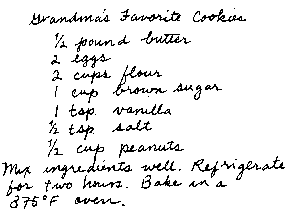 Grandma's Favorite Cookies
½ pound butter
2 eggs
2 cups flour
1 cup brown sugar
1 tsp. vanilla
½ tsp salt
½ cup peanuts
Mix ingredients well. Refrigerate
for two hours. Bake in a
375°F oven.